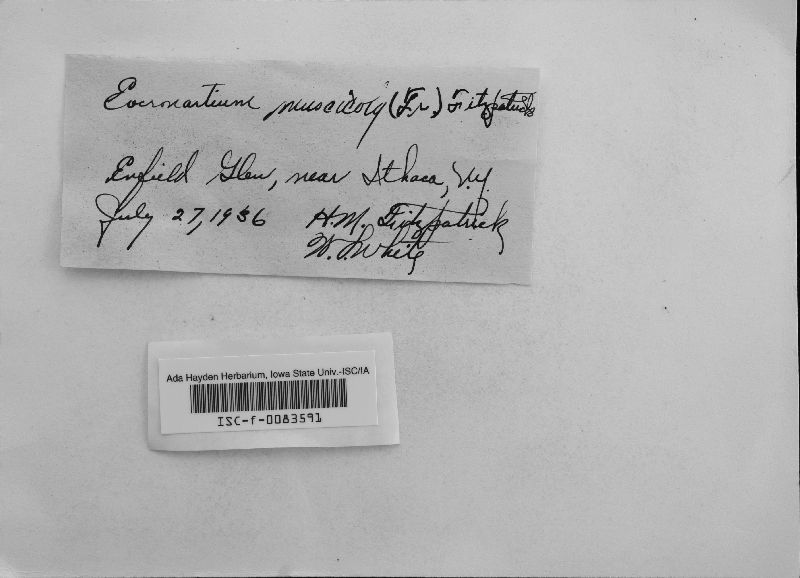 Eocronartium muscicola (Fr.) Fitzpatrick
Enfield Glen, near Ithaca, N.Y.
July 27, 1936 H.M. Fitzpatrick
W. L. White
Ada Hayden Herbarium, Iowa State Univ.-ISC/IA
ISC-f-0083591